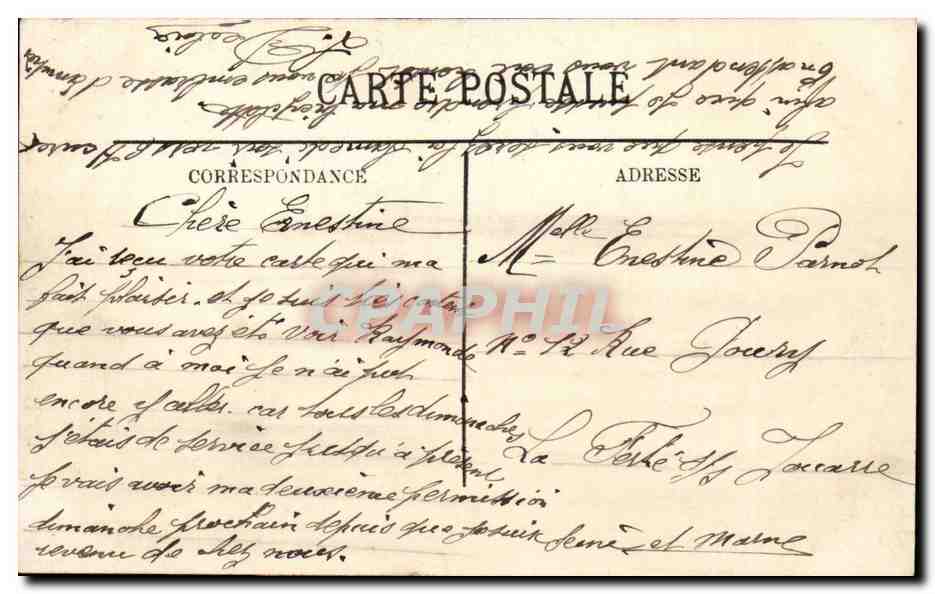 CARTE POSTALE
CORRESPONDANCE
ADRESSE
Chère Ernestine
J'ai reçu votre carte qui ma
fait plaisir. et je suis très content
que vous avez été voir Raymonde
quand à moi je n'ai put
encore y aller. car tous les dimanches
j'étais de service jusqu'à présent,
je vais avoir ma deuxième permission
dimanche prochain depuis que je suis
revenu de chez nous.
Melle Enestine Parnot
N° 12 Rue Joury
La Ferté s/s Jouarre
Seine et Marne
Je pense que vous
afin que je
En attendant vous voir
vous embrasse
CPAPHIL